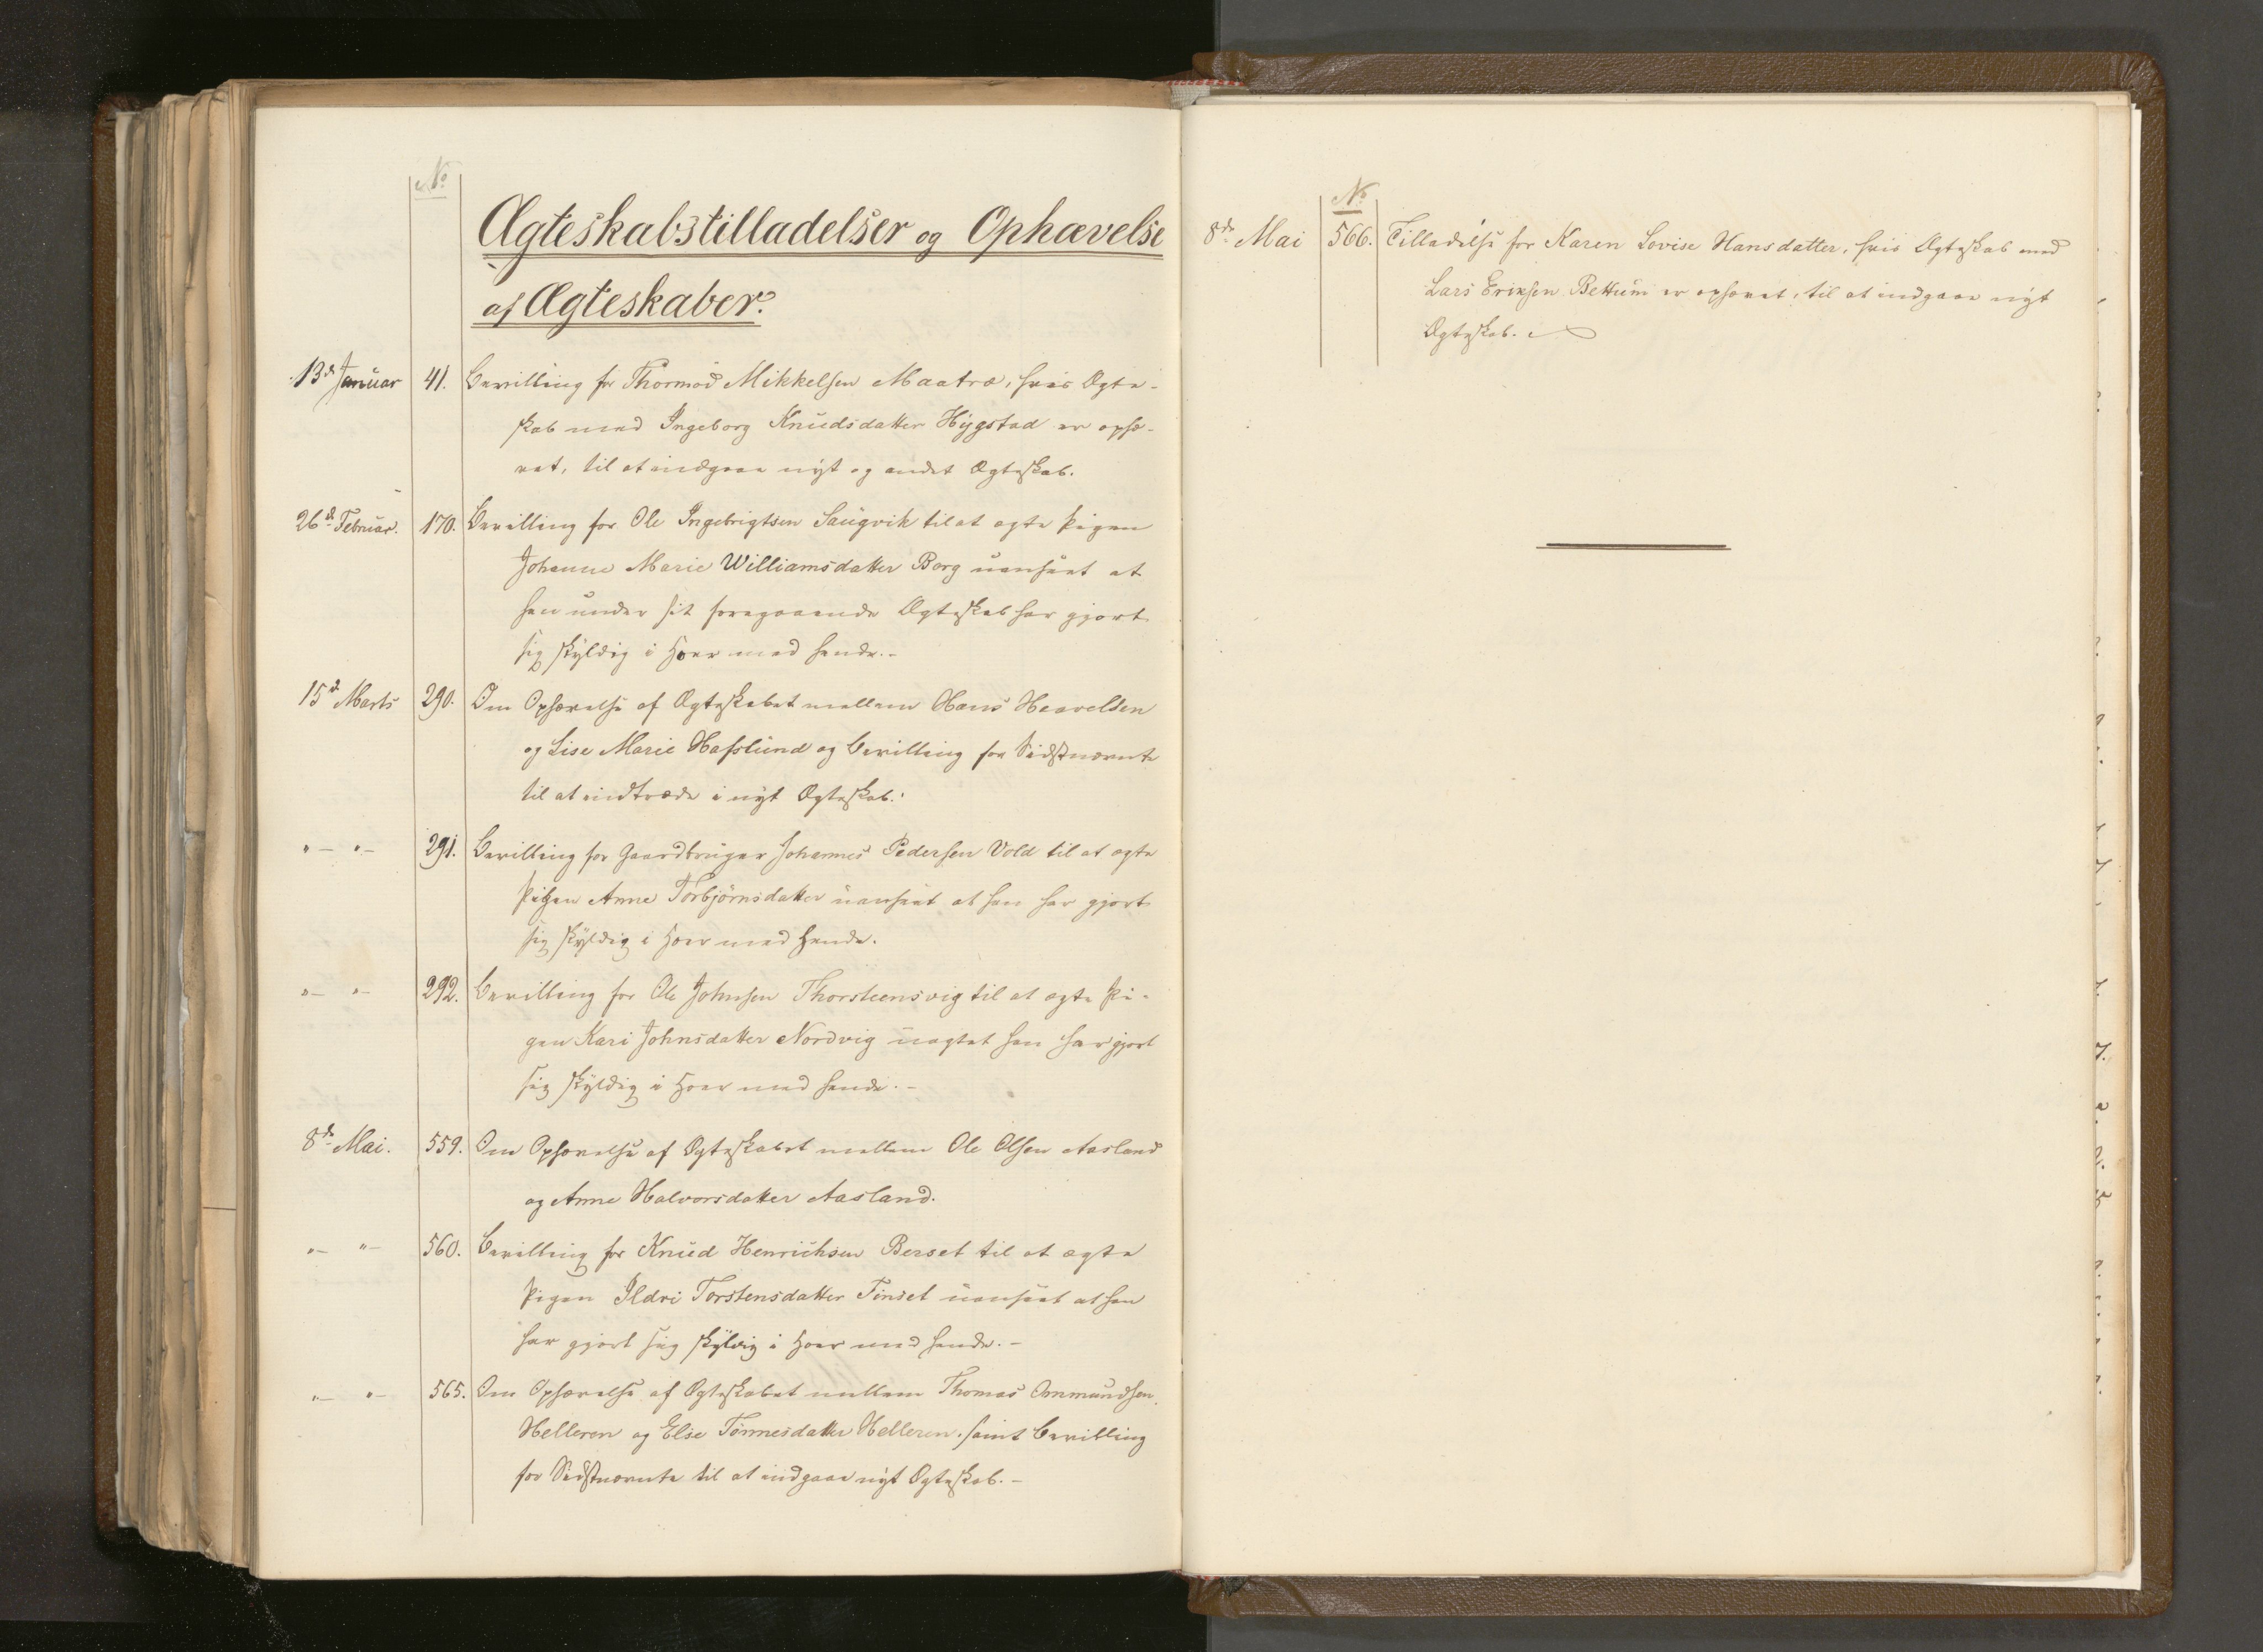 No
Ægteskabstilladelser og Ophævelse
af Ægteskaber.
13de Januar 41. Bevilling for Thormod Mikkelsen Maatræ, hvis Ægte-
skab med Ingeborg Knudsdatter Hygstad er ophæ-
vet, til at indgaae nyt og andet Ægteskab.
26de Februar. 170. Bevilling for Ole Ingebrigtsen Saugvik til at ægte Pigen
Johanne Marie Williamsdatter Borg uanseet at
han under sit foregaaende Ægteskab har gjort
sig skyldig i Hoer med hende.-
15de Marts 290. Om Ophævelse af Ægteskabet mellem Hans Haavelsen
og Lise Marie Hafslund og Bevilling for Sidstnævnte
til at indtræde i nyt Ægteskab.
"- "- 291. Bevilling for Gaardbruger Johannes Pedersen Vold til at ægte
Pigen Anne Torbjörnsdatter uanseet at han har gjort
sig skyldig i Hoer med hende.
"- "- 292. Bevilling for Ole Johnsen Thorsteensvig til at ægte Pi-
gen Kari Johnsdatter Nordvig uagtet han har gjort
sig skyldig i Hoer med hende.-
8de Mai. 559. Om Ophævelse af Ægteskabet mellem Ole Olsen Aasland
og Anne Halvorsdatter Aasland.
"- "- 560. Bevilling for Knud Henrichsen Berset til at ægte
Pigen Ildri Torstensdatter Tindet uanseet at han
har gjort sig skyldig i Hoer med hende.-
"- "- 565. Om Ophævelse af Ægteskabet mellem Thomas Ommundsen
Helleren og Else Tönnesdatter Helleren, samt Bevilling
for Sidstnævnte til at indgaae nyt Ægteskab.-
No
8de Mai 566. Tilladelse for Karen Lovise Hansdatter, hvis Ægteskab med
Lars Eriksen Bettum er ophævet, til at indgaae nyt
Ægteskab.